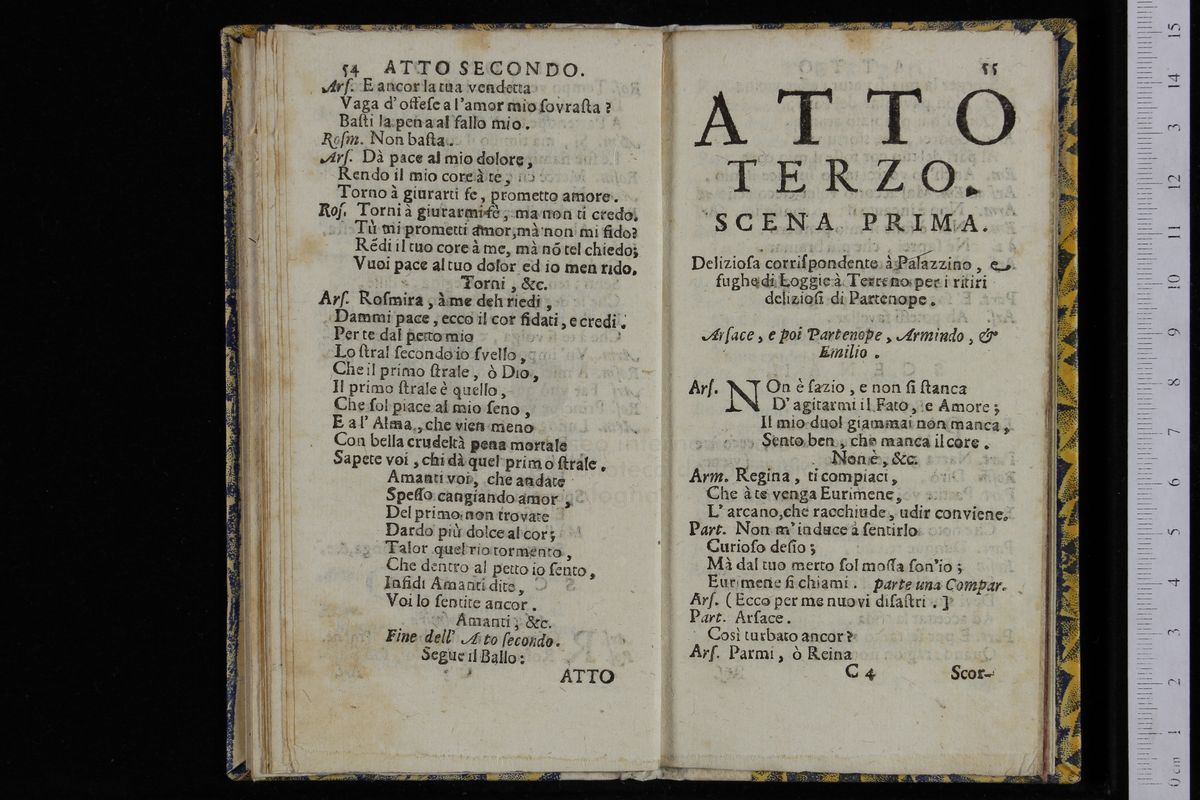 54 ATTO SECONDO.
Arſ. E ancor la tua vendetta
Vaga d'offeſe a l'amor mio ſovraſta?
Baſti la pena al fallo mio.
Roſm. Non baſta.
Arſ. Dà pace al mio dolore,
Rendo il mio core à te,
Torno à giurarti fe, prometto amore.
Roſ. Torni à giurarmi fè, ma non ti credo.
Tù mi prometti amor, mà non mi fido?
Rēdi il tuo core à me, mà nō tel chiedo;
Vuoi pace al tuo dolor ed io men rido.
Torni, &c.
Arſ. Roſmira, à me deh riedi,
Dammi pace, ecco il cor fidati, e credi.
Per te dal petto mio
Lo ſtral ſecondo io ſvello,
Che il primo ſtrale, ò Dio,
Il primo ſtrale è quello,
Che ſol piace al mio ſeno,
E a l'Alma, che vien meno
Con bella crudeltà pena mortale
Sapete voi, chi dà quel primo ſtrale.
Amanti voi, che andate
Speſſo cangiando amor,
Del primo non trovate
Dardo più dolce al cor;
Talor quel rio tormento,
Che dentro al petto io ſento,
Infidi Amanti dite,
Voi lo ſentite ancor.
Amanti, &c.
Fine dell' Atto ſecondo.
Segue il Ballo:
ATTO
55
ATTO
TERZO.
SCENA PRIMA.
Delizioſa corriſpondente à Palazzino, e
fughe di Loggie à Terreno per i ritiri
delizioſi di Partenope.
Arſace, e poi Partenope, Armindo, &
Emilio.
Arſ. NOn è ſazio, e non ſi ſtanca
D'agitarmi il Fato, e Amore;
Il mio duol giammai non manca,
Sento ben, che manca il core.
Non è, &c.
Arm. Regina, ti compiaci,
Che à te venga Eurimene,
L'arcano, che racchiude, udir conviene.
Part. Non m'induce à ſentirlo
Curioſo deſio;
Mà dal tuo merto ſol moſſa ſon'io;
Eurimene ſi chiami. parte una Compar.
Arſ. (Ecco per me nuovi diſaſtri.]
Part. Arſace.
Così turbato ancor?
Arſ. Parmi, ò Reina
C 4 Scor-